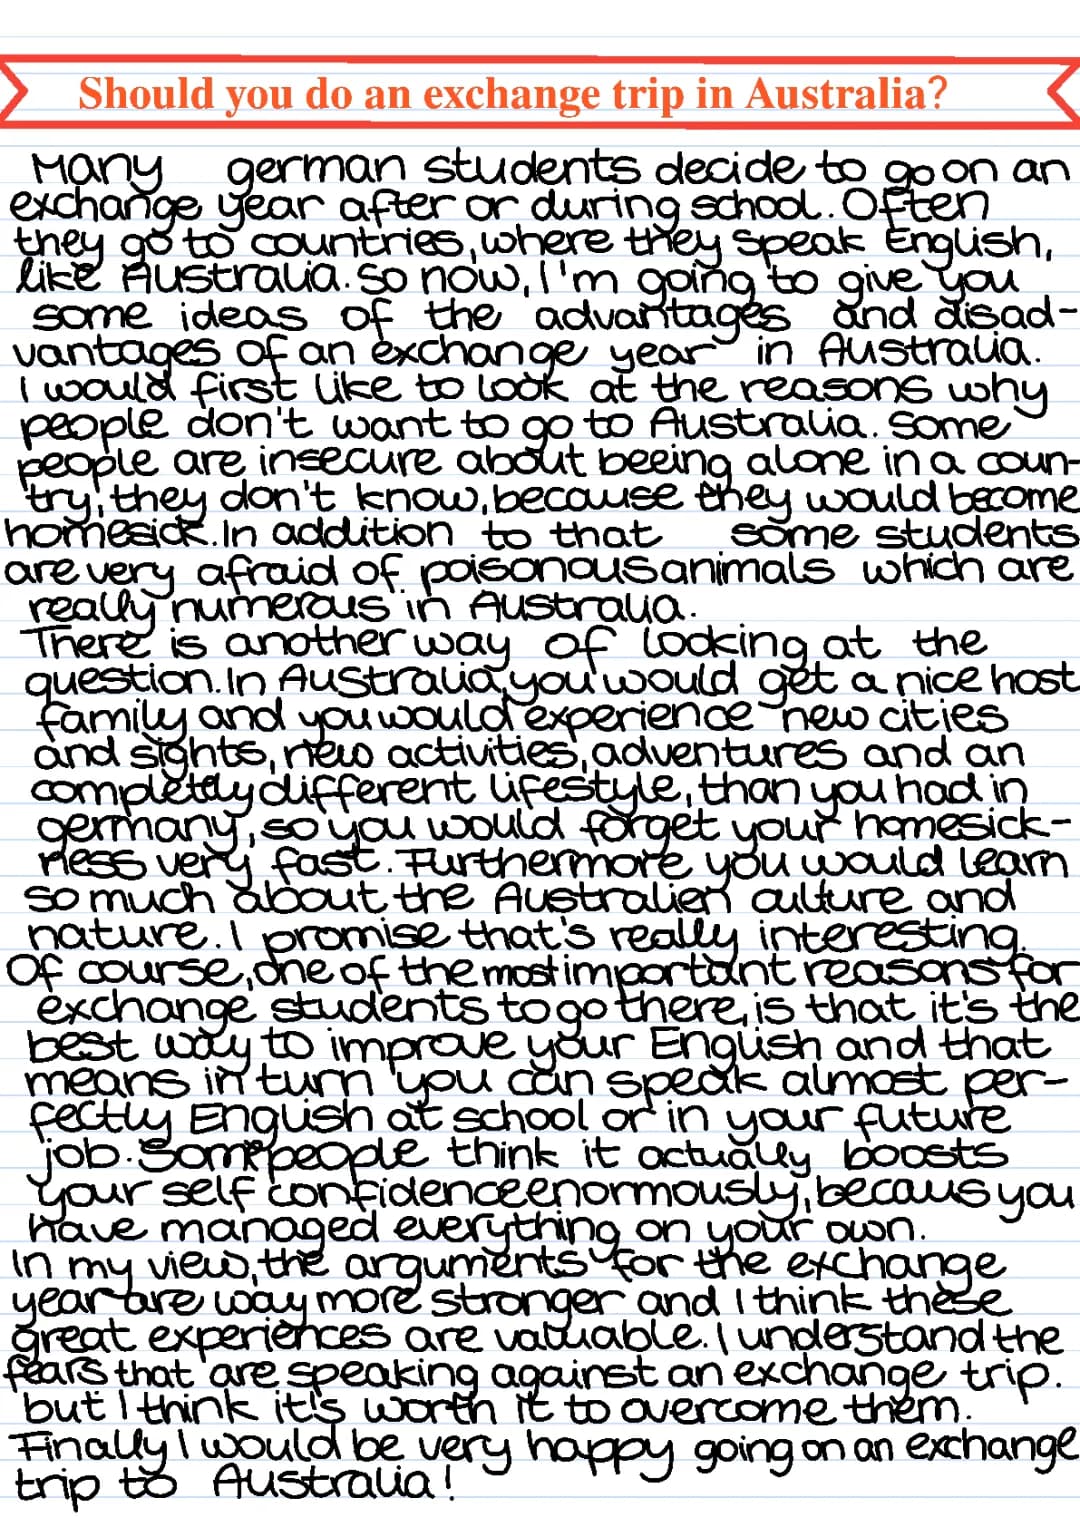 Should you do an exchange trip in Australia?
Many german students decide to go on an
exchange year after or during school. Often
they go to countries, where they speak English,
like Australia. So now, I'm going to give you
some ideas of the advantages and disad-
vantages of an exchange year in Australia.
I would first like to look at the reasons why
people don't want to go to Australia. Some
people are insecure about beeing alone in a coun-
try, they don't know, because they would become
homesick. In addition to that some students
are very afraid of poisonous animals which are
really numerous in Australia.
There is another way of looking at the
question. In Australia, you would get a nice host
family and you would experience new cities
and sights, new activities, adventures and an
completly different lifestyle, than you had in
germany, so you would forget your homesick-
ness very fast. Furthermore you would learn
so much about the Australien culture and
nature. I promise that's really interesting.
Of course, one of the most important reasons for
exchange students to go there, is that it's the
best way to improve your English and that
means in turn you can speak almost per-
fectly English at school or in your future
job. Some people think it actually boosts
your self confidence enormously, becaus you
have managed everything on your own.
In my view, the arguments for the exchange
year are way more stronger and I think these
great experiences are valuable. I understand the
fears that are speaking against an exchange trip.
but I think it's worth it to overcome them.
Finally I would be very happy going on an exchange
trip to Australia!